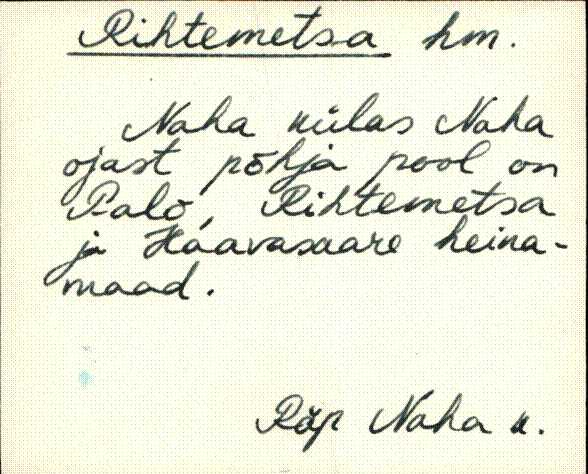 Rihtemetsa hm.
Naha külas Naha
ojast põhja pool on
Palo, Rihtemetsa
ja Haavasaare heina-
maad.
Räp Naha k.